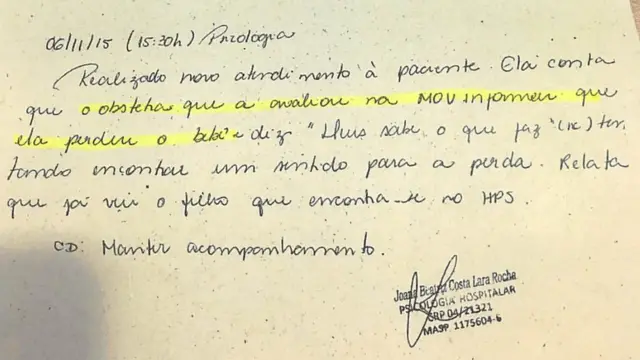 06/11/15 (15:30h) Psicologia
Realizado novo atendimento à paciente. Ela conta
que o obstetra que a avaliou na MOV informou que
ela perdeu o bebê e diz "Deus sabe o que faz" (sic) ten
tando encontrar um sentido para a perda. Relata
que já viu o filho que encontra-se no HPS.
CD: Manter acompanhamento.
Joana Beatriz Costa Lara Rocha
PSICOLOGIA HOSPITALAR
CRP 04/21321
MASP 1175604-6